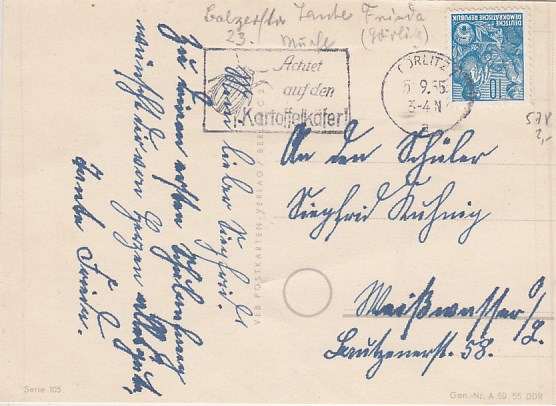 Balzerstr. Tante Frieda
23. (Görlitz)
Achtet
auf den
Kartoffelkäfer!
GÖRLITZ
9.55.
3-4 N
a
DEUTSCHE
DEMOKRATISCHE REPUBLIK
10
2,-
Mein lieber Siegfried!
Zu deinem ersten Schulgang
wünscht dir von Herzen alles Gute
Tante Frieda.
VEB POSTKARTEN-VERLAG / BERLIN C 2
An den Schüler
Siegfried Kuhnig
Weißwasser O/L.
Bautzenerst. 58.
Serie 105
Gen.-Nr. A 59/55 DDR